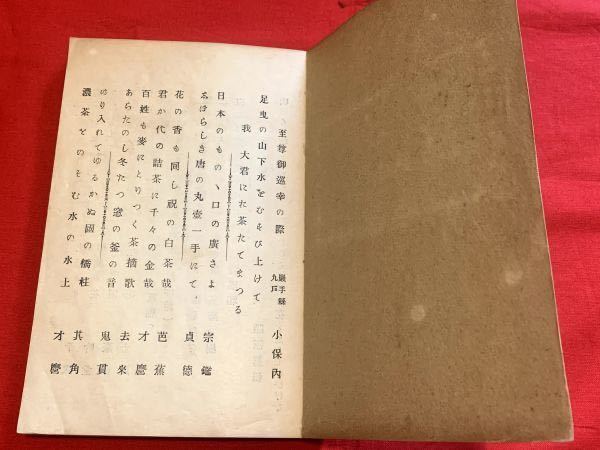 至尊御巡幸の際
巖手縣
九戸
小保內
足曳の山下水をむすび上けて
我大君にた茶たてまつる
日本のもの丶口の廣さよ 宗鑑
唐の丸壺一手にて 貞德
花の香も同し祝の白茶哉 芭蕉
君か代の詰茶に千々の金哉 才麿
百姓も麥にとりつく茶摘歌 去來
あらたのし冬たつ窓の釜の音 鬼貫
ほり入れてゆるかぬ國の橋柱 其角
濃茶をのそむ水の水上 才麿